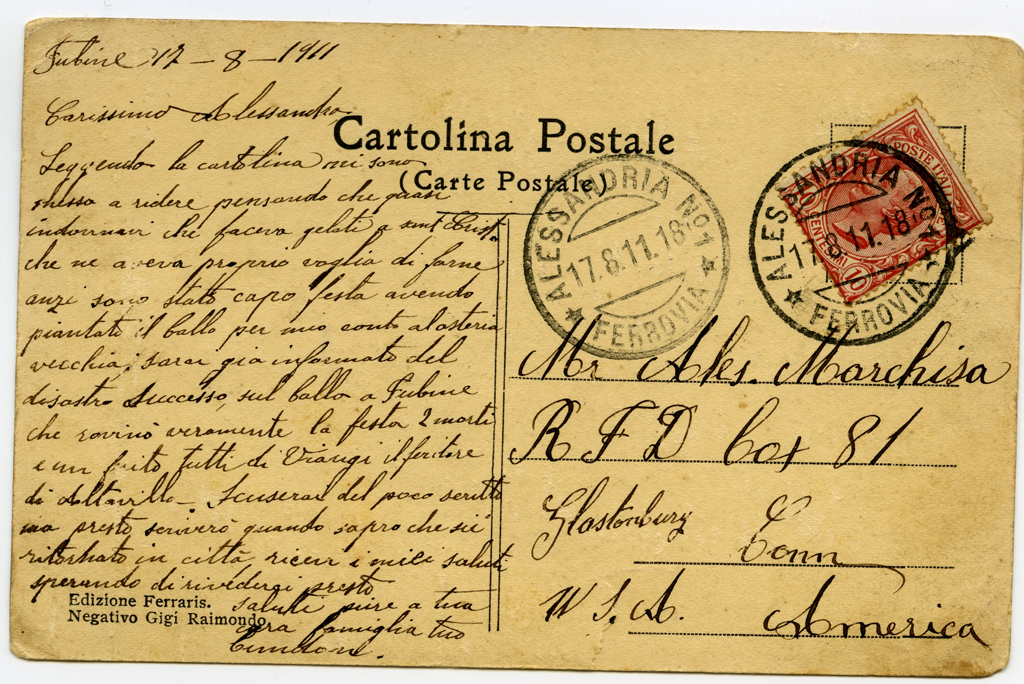 Fubine 17 - 8 - 1911
Carissimo Alessandro
Leggendo la cartolina mi sono
messo a ridere pensando che quasi
indovinavi che faceva gelati a
che ne aveva proprio voglia di farne
anzi sono stato capo festa avendo
piantato il ballo per mio conto al osteria
vecchia; sarai gia informato del
disastro successo sul ballo a Fubine
che rovinò veramente la festa 2 morti
e un ferito tutti di Viarigi il feritore
di Altavilla - Scuserai del poco scritto
ma presto scriverò quando saprò che sié
ritornato in città ricevi i miei saluti
sperando di rivederci presto
saluti pure a tua
cara famiglia tuo
Cartolina Postale
(Carte Postale)
ALESSANDRIA No1
17.8.11.18
FERROVIA
POSTE ITALIANE
CENTESIMI 10
ALESSANDRIA No1
17.8.11.18
FERROVIA
Mr Ales. Marchisa
R F D box 81
Glastonbury
Conn
U.S.A. America
Edizione Ferraris.
Negativo Gigi Raimondo